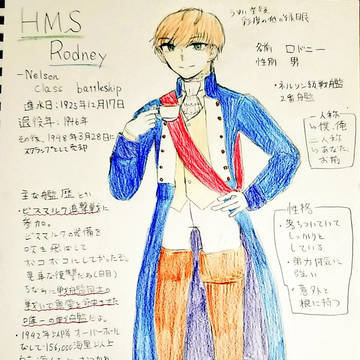 HMS
Rodney
-Nelson
class battleship
進水日:1925年12月17日
退役年:1946年
その後、1948年3月28日に
スクラップとして売却
主な艦歴とか
・ビスマルク追撃戦に
参加。
ビスマルクの武備を
吹き飛ばして
ボコボコにしてやった。
見事な復讐だね(白目)
ちなみに戦艦同士の
戦いで魚雷を命中させた
唯一の戦艦だよ。
・1942年以降オーバーホール
なしで156,000海里以上
名前 ロドニー
性別 男
・ネルソン級戦艦
2番艦
一人称
→僕、俺
二人称
→あなた、
お前
性格
・落ちついていて
しっかりと
している
・努力
強い
・意外と
根に持つ